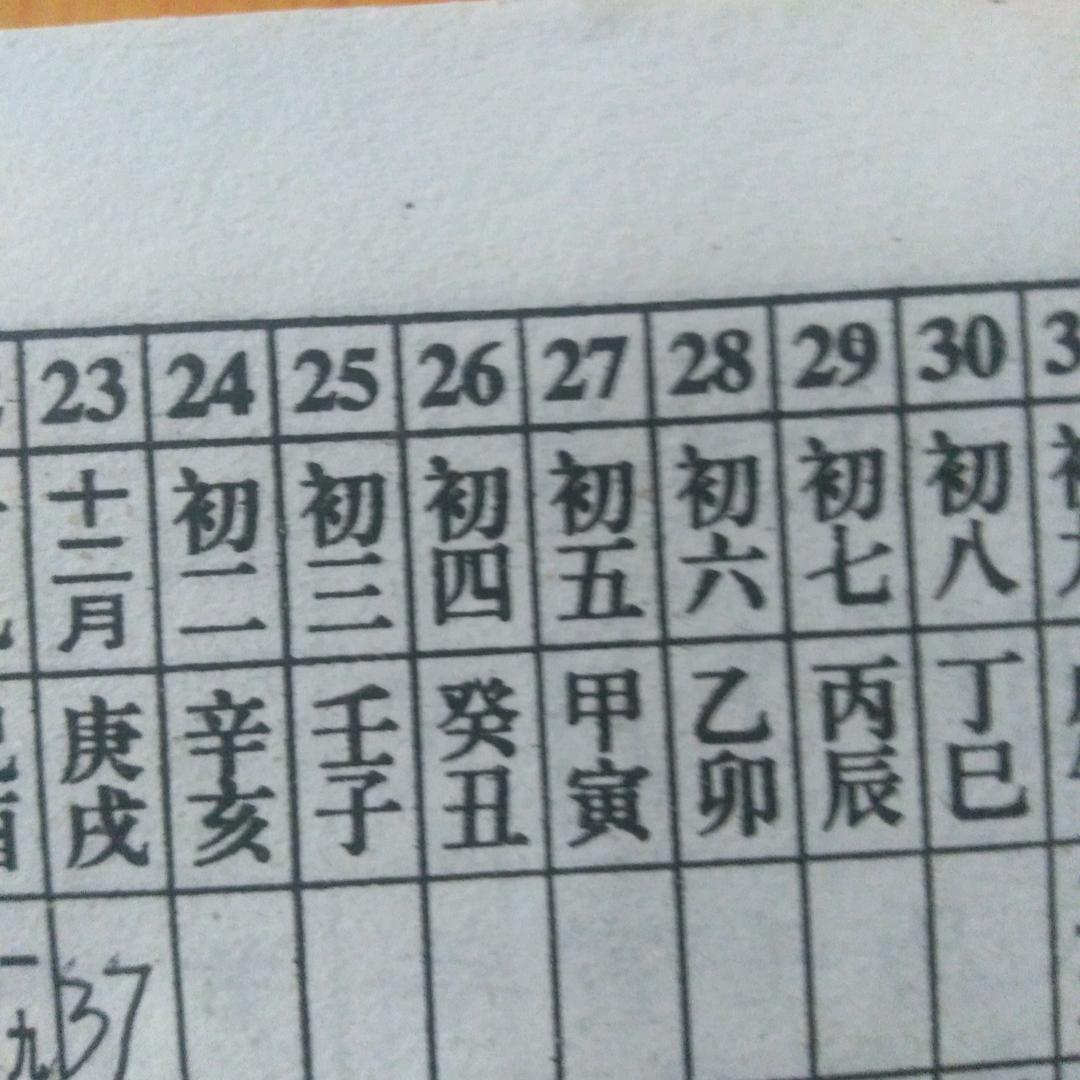 23 24 25 26 27 28 29 30
十二月 初二 初三 初四 初五 初六 初七 初八
庚戌 辛亥 壬子 癸丑 甲寅 乙卯 丙辰 丁巳
一九 37